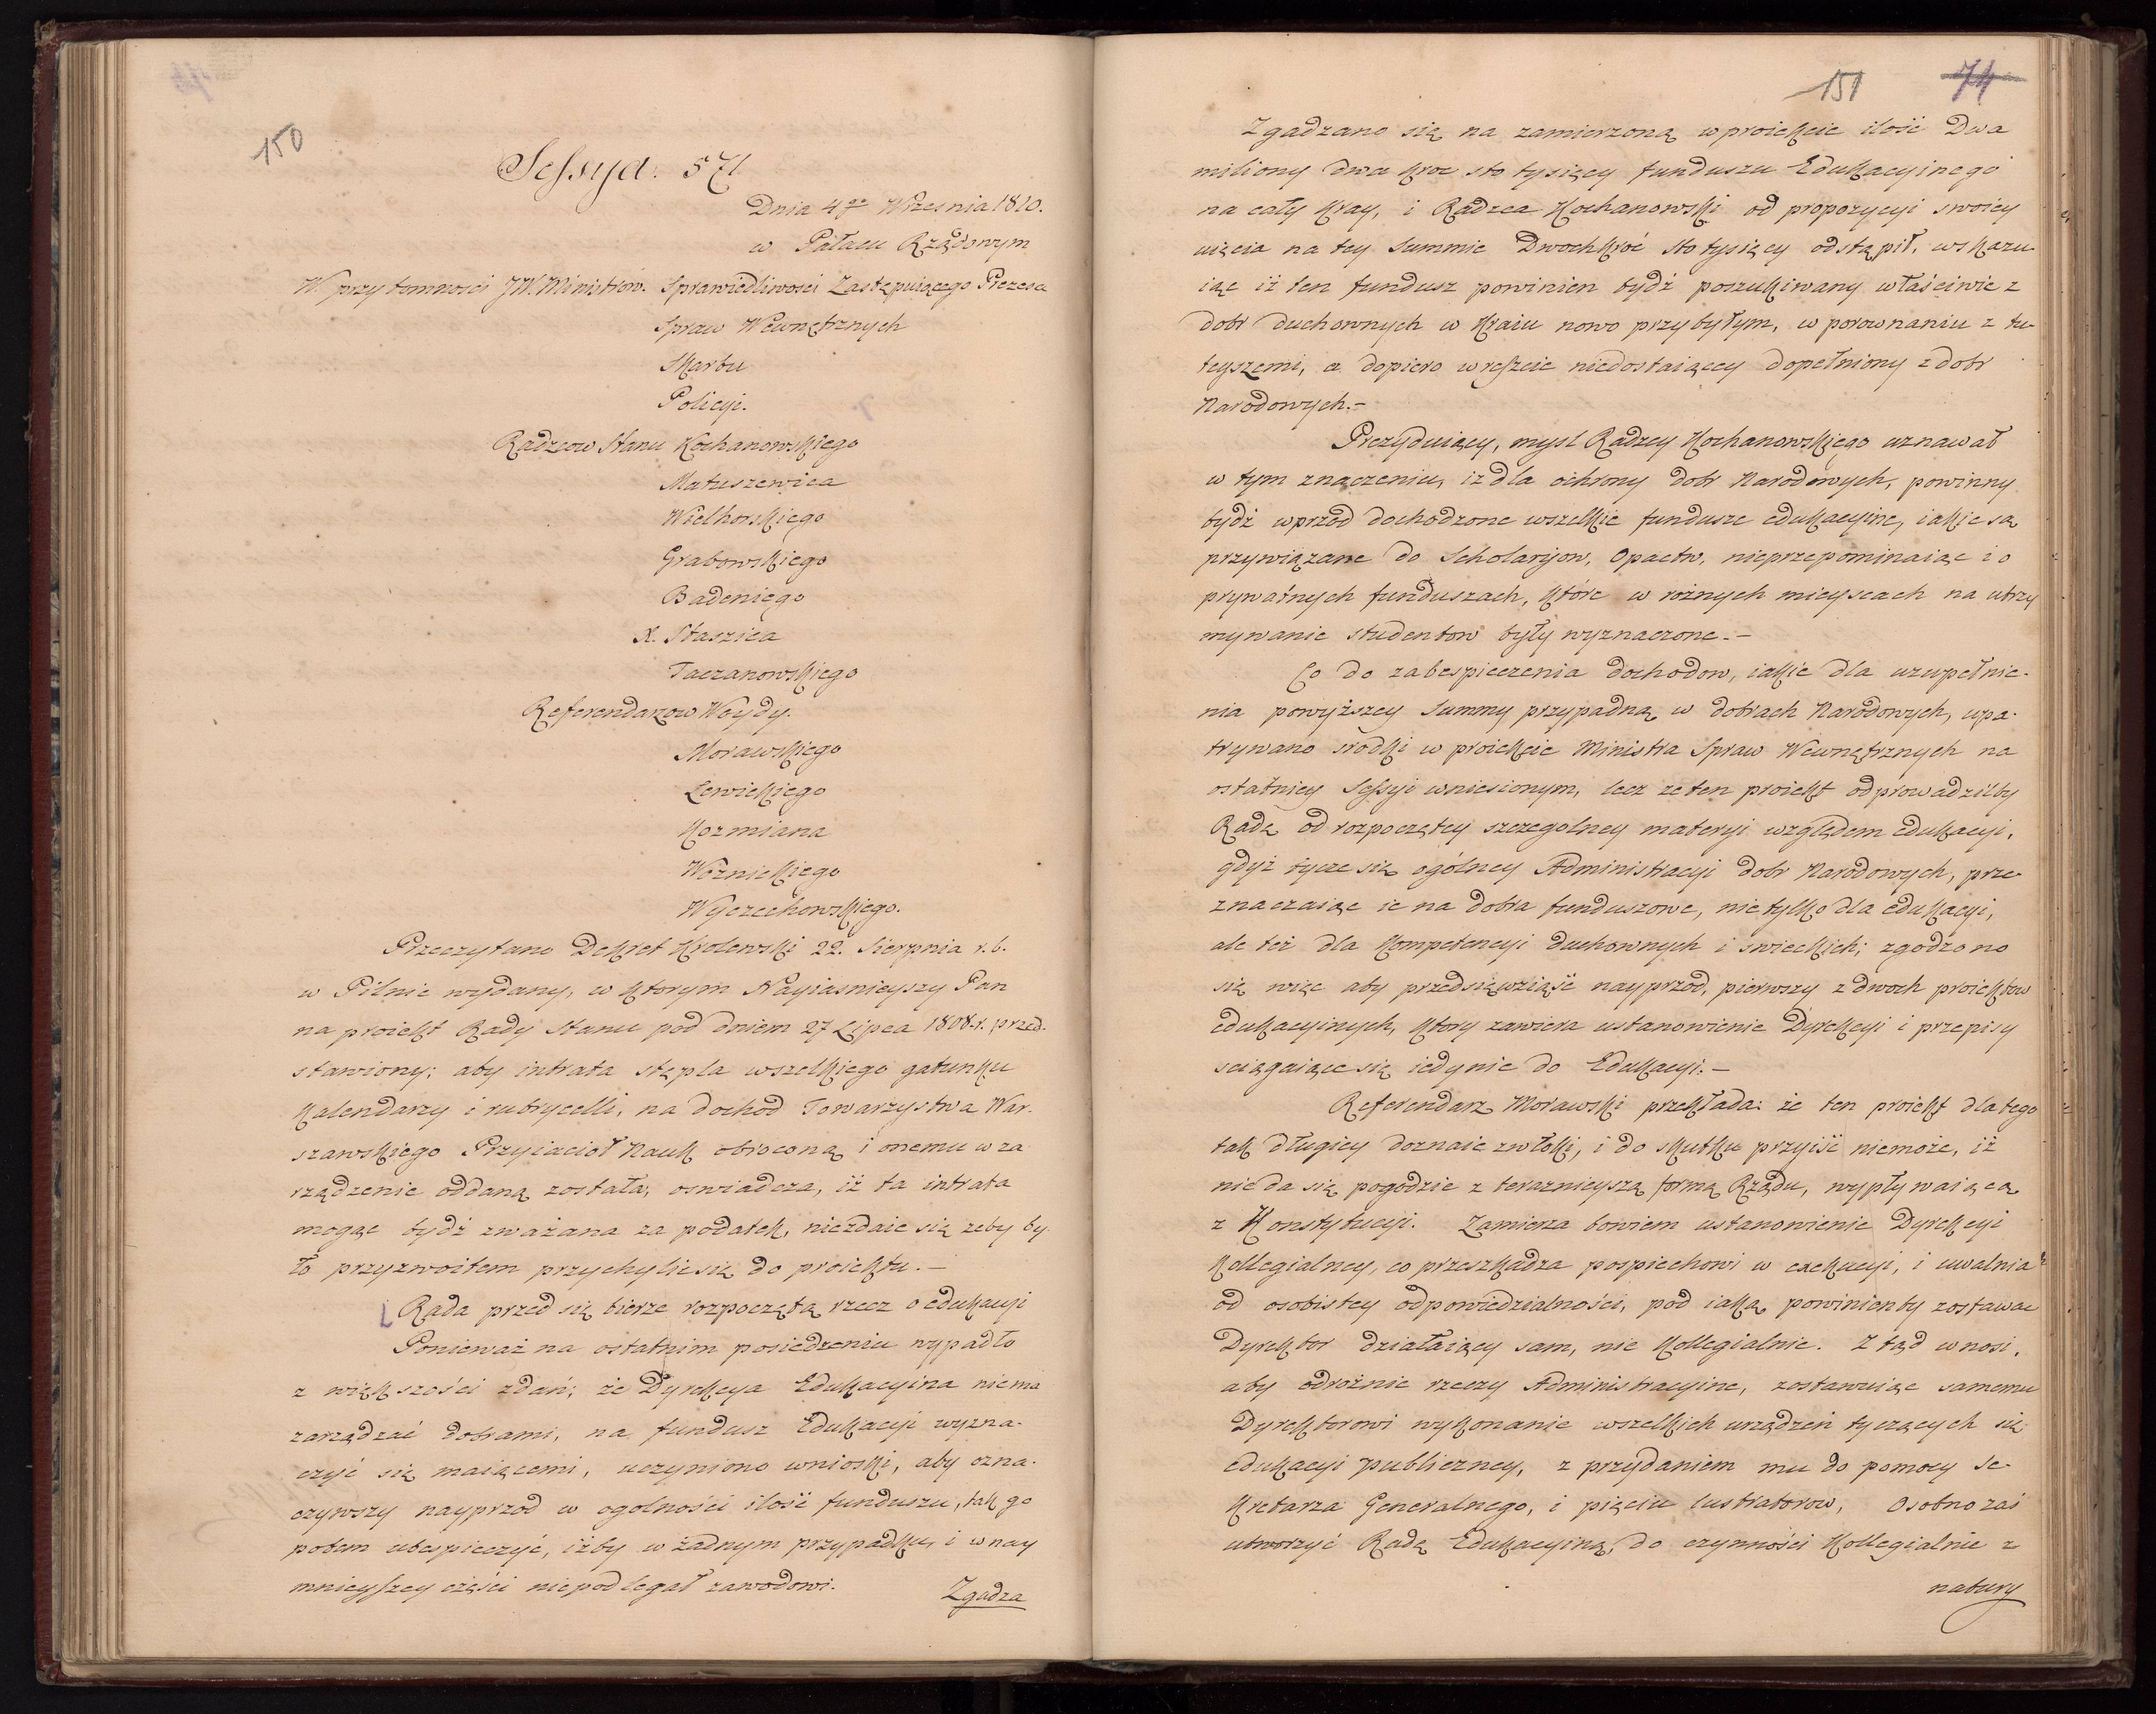 150
Sessya. 571
Dnia 4go Wrzesnia 1810.
w Pałacu Rządowym
W przytomności JW. Ministrow. Sprawiedliwości Zastępuiącego Prezesa
Spraw Wewnętrznych
Skarbu
Policyi.
Radzcow Stanu Kochanowskiego
Matuszewica
Wielhorskiego
Grabowskiego
Badeniego
X. Staszica
Taczanowskiego
Referendarzow Woydy.
Morawskiego
Lewickiego
Kozmiana
Woznickiego
Wyczechowskiego.
Przeczytano Dekret Krolewski 22. Sierpnia r. b.
w Pilnie wydany, w ktorym Nayiasnieyszy Pan
na proiekt Rady Stanu pod dniem 27 Lipca 1808. r. przed-
stawiony; aby intrata stępla wszelkiego gatunku
Kalendarzy i rubrycelli, na dochod Towarzystwa War-
szawskiego Przyiacioł Nauk obrocona i onemu w za
rządzenie oddaną została; oswiadcza, iż ta intrata
mogąc bydź zważana za podatek, niezdaie się zeby by-
ło przyzwoitem przychylić się do proiektu. —
Rada przed się bierze rozpoczętą rzecz o edukacyi
Ponieważ na ostatnim posiedzeniu wypadło
z większości zdań; że Dyrekcya Edukacyina niema
zarządzać dobrami, na fundusz Edukacyi wyzna-
czyć się maiącemi, uczyniono wnioski, aby ozna-
czywszy nayprzod w ogolności ilość funduszu, tak go
potem ubespieczyć, iżby w żadnym przypadku, i w nay
mnieyszey części niepodlegał zawodowi.
Zgadza
151 74
Zgadzano się na zamierzoną w proiekcie ilość Dwa
miliony dwa kroc sto tysięcy funduszu Edukacyinego
na cały Kray, i Radzca Kochanowski od propozycyi swoiey
uięcia na tey Summie Dwochkroć sto tysięcy odstąpił, wskazu
iąc iż ten fundusz powinien bydź poszukiwany właściwie z
dobr duchownych w Kraiu nowo przybyłym, w porownaniu z tu-
teyszemi, a dopiero w reszcie niedostaiącey dopełniony z dobr
Narodowych. —
Prezyduiący, mysl Radzcy Kochanowskiego uznawał
w tym znaczeniu, iz dla ochrony dobr Narodowych, powinny
bydź wprzod dochodzone wszelkie fundusze edukacyine, iakie są
przywiązane do Scholaryow, Opactw, nieprzepominaiąc i o
prywatnych funduszach, które w rożnych mieyscach na utrzy
mywanie studentow były wyznaczone. —
Co do zabespieczenia dochodow, iakie dla uzupełnie-
nia powyższey Summy przypadną w dobrach Narodowych, upa-
trywano srodki w proiekcie Ministra Spraw Wewnętrznych na
ostatniey Sessyi wniesionym, lecz ze ten proiekt odprowadziłby
Radę od rozpoczętey szczegolney materyi względem edukacyi,
gdyż tycze się ogólney Administracyi dobr Narodowych, prze-
znaczaiąc ie na dobra funduszowe, nie tylko dla edukacyi,
ale też dla Kompetencyi duchownych i swieckich; zgodzono
się więc aby przedsięwziąść nayprzod, pierwszy z dwoch proiektow
edukacyinych, ktory zawiera ustanowienie Dyrekcyi i przepisy
sciągaiące się iedynie do Edukacyi. —
Referendarz Morawski przekłada: że ten proiekt dla tego
tak długiey doznaie zwłoki, i do skutku przyiść niemoże, iż
nie da się pogodzic z terazniejszą formą Rządu, wypływaiącą
z Konstytucyi. Zamierza bowiem ustanowienie Dyrekcyi
Kollegialney, co przeszkadza pospiechowi w exekucyi, i uwalnia
od osobistey odpowiedzialności, pod iaką powinienby zostawac
Dyrektor działaiący sam, nie Kollegialnie. Z tąd wnosi,
aby odroznic rzeczy Administracyine, zostawuiąc samemu
Dyrektorowi wykonanie wszelkich urządzeń tyczących się
edukacyi publiczney, z przydaniem mu do pomocy Se-
kretarza Generalnego, i pięciu lustratorow, Osobno zaś
utworzyć Radę Edukacyiną, do czynności Kollegialnie z
natury